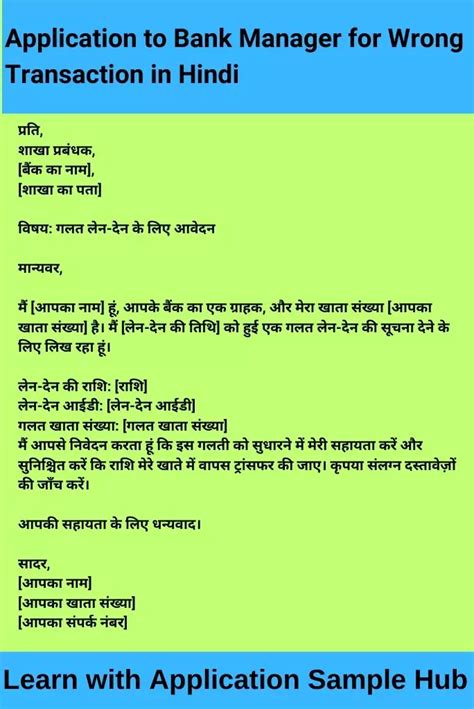 Application to Bank Manager for Wrong
Transaction in Hindi
प्रति,
शाखा प्रबंधक,
[बैंक का नाम],
[शाखा का पता]
विषय: गलत लेन-देन के लिए आवेदन
मान्यवर,
मैं [आपका नाम] हूं, आपके बैंक का एक ग्राहक, और मेरा खाता संख्या [आपका
खाता संख्या] है। मैं [लेन-देन की तिथि] को हुई एक गलत लेन-देन की सूचना देने के
लिए लिख रहा हूं।
लेन-देन की राशि: [राशि]
लेन-देन आईडी: [लेन-देन आईडी]
गलत खाता संख्या: [गलत खाता संख्या]
मैं आपसे निवेदन करता हूं कि इस गलती को सुधारने में मेरी सहायता करें और
सुनिश्चित करें कि राशि मेरे खाते में वापस ट्रांसफर की जाए। कृपया संलग्न दस्तावेज़ों
की जाँच करें।
आपकी सहायता के लिए धन्यवाद।
सादर,
[आपका नाम]
[आपका खाता संख्या]
[आपका संपर्क नंबर]
Learn with Application Sample Hub